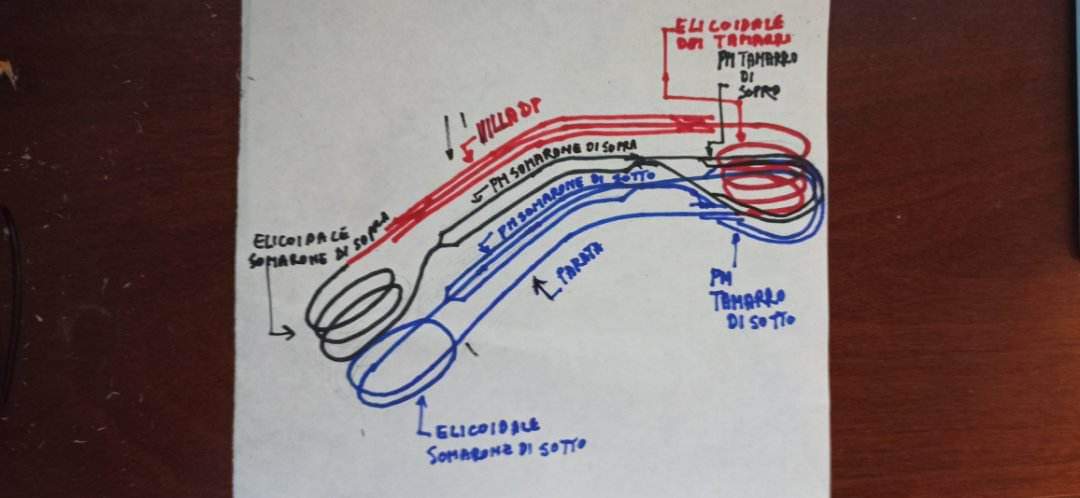 ELICOIDALE
DEI TAMARRI
PM TAMARRO
DI
SOPRO
VILLADP
PM SOMARONE DI SOPRA
PM SOMARONE DI SOTTO
ELICOIDALE
SOMARONE DI SOPRA
PARATA
PM
TAMARRO
DI SOTTO
ELICOIDALE
SOMARONE DI SOTTO